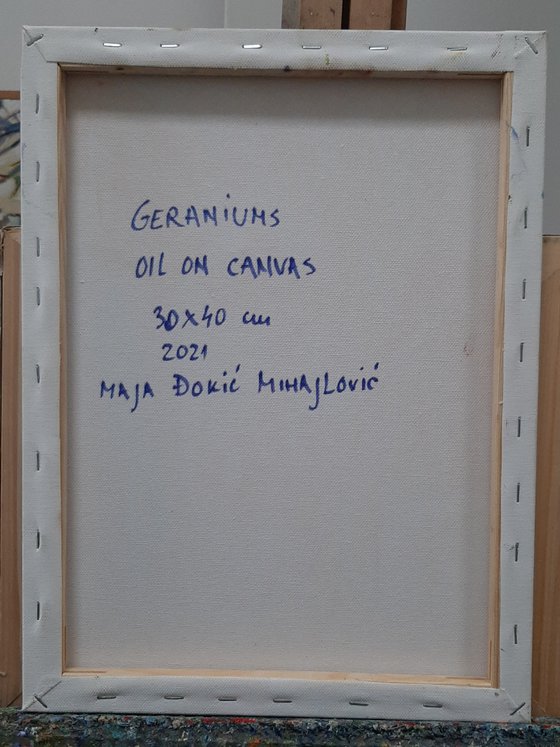 GERANiUMS
OIL ON CANVAS
30X40 cm
2021
MAJA ĐOKić MIHAJLović